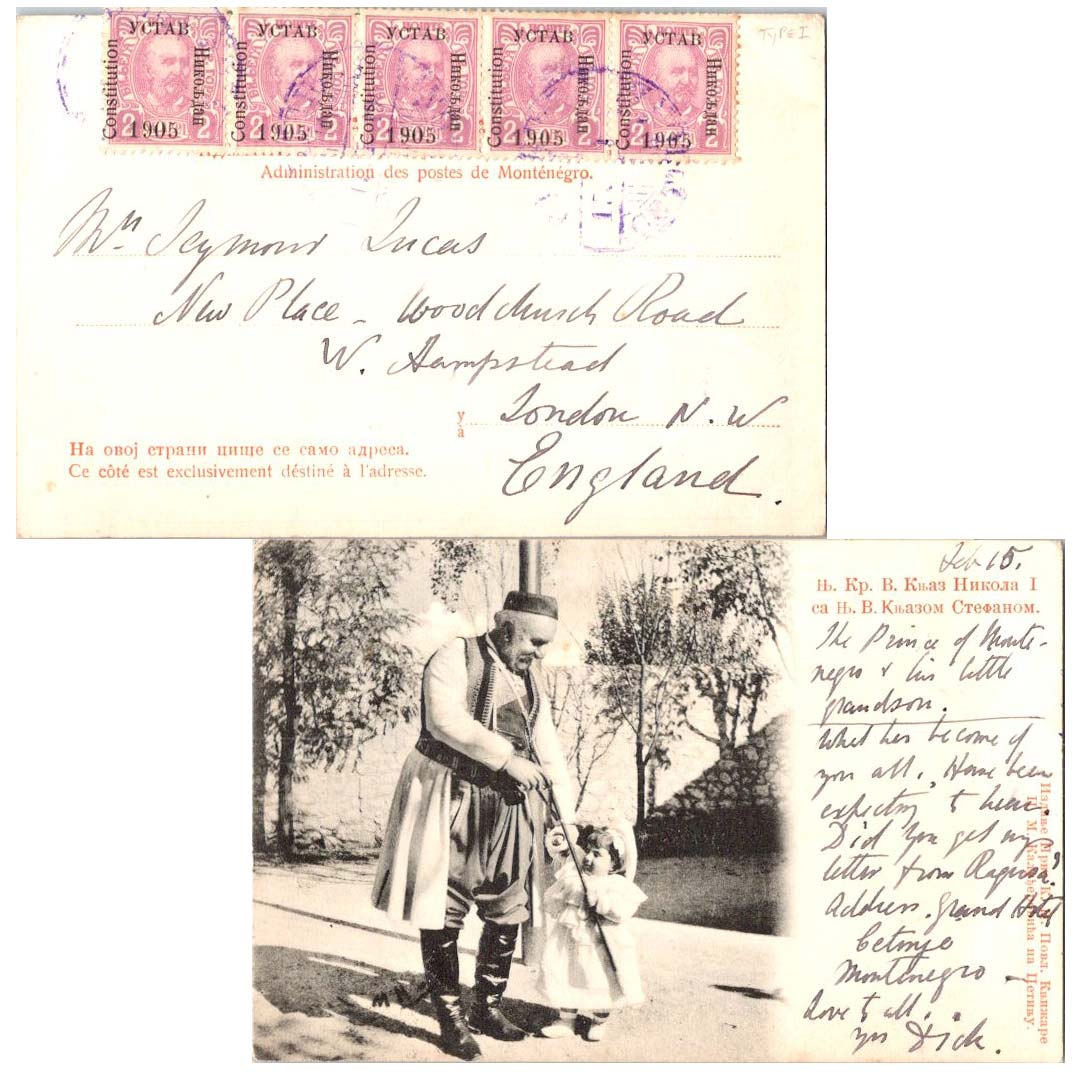 TYPE I
УСТАВ УСТАВ УСТАВ УСТАВ УСТАВ
Constitution Constitution Constitution Constitution Constitution
Никољдан Никољдан Никољдан Никољдан Никољдан
2 1905 2 2 1905 2 2 1905 2 2 1905 2 2 1905 2
Administration des postes de Monténégro.
Mrs Seymour Lucas
New Place - Woodchurch Road
W. Hampstead
у
à
London N.W
England.
На овој страни пише се само адреса.
Ce côté est exclusivement déstiné à l'adresse.
Feb 15.
Њ. Кр. В. Књаз Никола I
са Њ. В. Књазом Стефаном.
The Prince of Monte-
negro & his little
grandson.
What has become of
you all. Have been
expecting to hear.
Did you get my
letter from Ragusa?
Address. Grand Hotel
Cetinje
Montenegro -
Love to all.
yrs Dick.
Повл. Књижаре
на Цетињу.